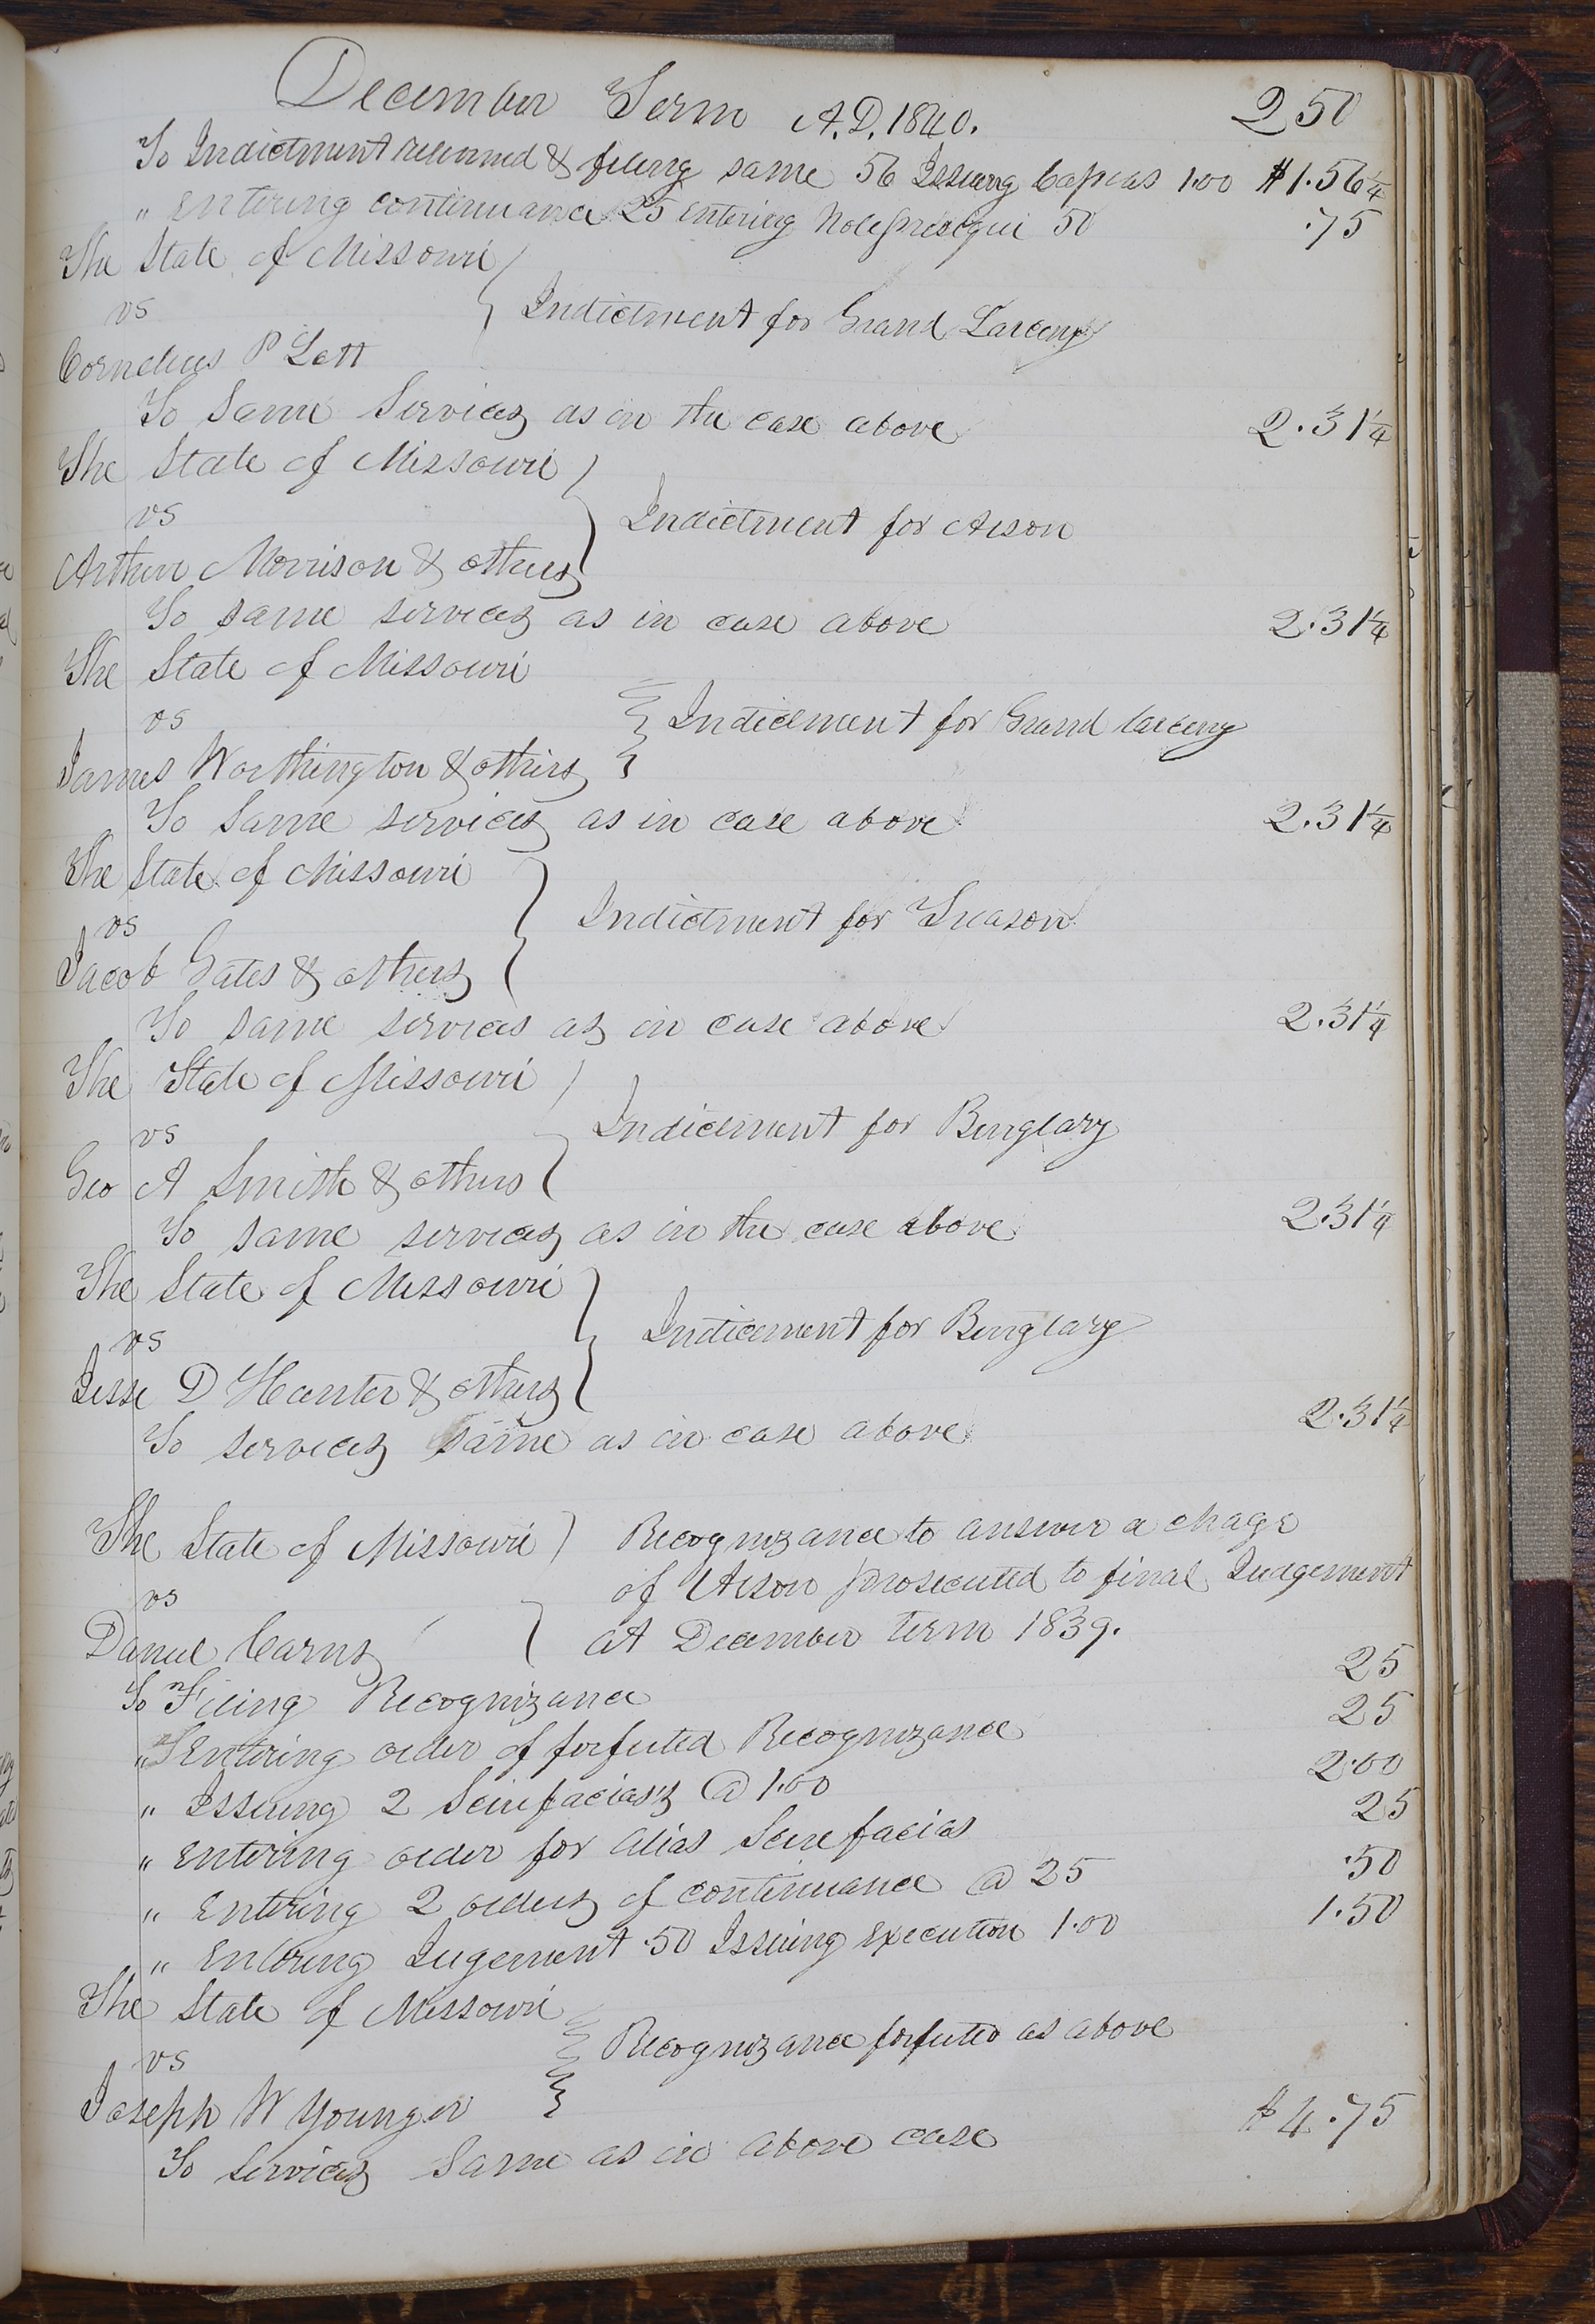 December Term A.D. 1840. 250
To Indictment returned & fileing same 56 Issueng Capias 1.00 $1.56¼
" Entering continuance 25 entering Nole prosequi 50 .75
The State of Missouri
vs Indictment for Grand Larceny
Cornelius P Lott
To Same Services as in the case above 2.31¼
The State of Missouri
vs Indictment for Arson
Arthur Morrison & others
To same services as in case above 2.31¼
The State of Missouri
vs Indictment for Grand larceny
James Worthington & others
To Same services as in case above 2.31¼
The State of Missouri
vs Indictment for Treason
Jacob Gates & others
To same services as in case above 2.31¼
The State of Missouri
vs Indictment for Burglary
Geo A Smith & others
To same services as in the case above 2.31¼
The State of Missouri
vs Indicement for Burglary
Jesse D Hunter & others
To services same as in case above 2.31¼
The State of Missouri Recognizance to answer a chage
vs of Arson prosecuted to final Judgement
Daniel Carns at December term 1839.
To Filing Recognizance 25
" Entering order of forfeited Recognizance 25
" Issuing 2 Scirefacias's @ 1.00 2.00
" Entering order for alias Scire facias 25
" Entering 2 orders of continuance @ 25 .50
" Entering Jugement .50 Issuing execution 1.00 1.50
The State of Missouri
vs Recognizance forfeited as above
Joseph W Younger
To Services Same as in above case $4.75